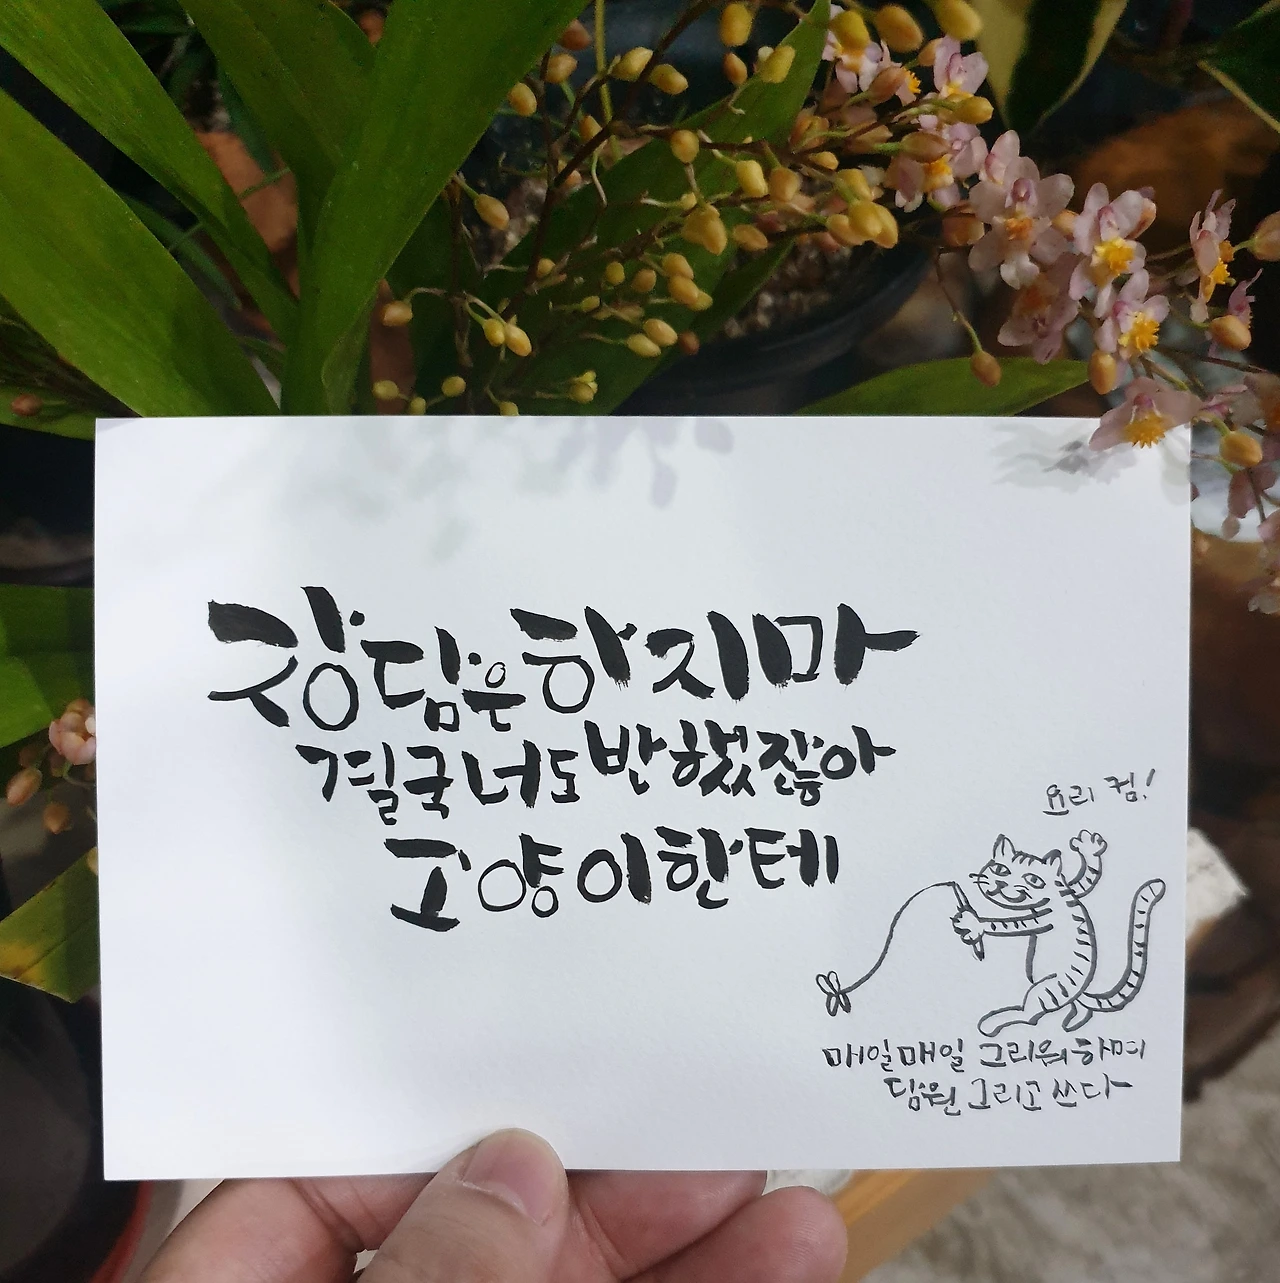 장담은하지마
결국너도반했잖아
고양이한테
요리 컴!
매일매일 그리워하며
담원 그리고 쓰다